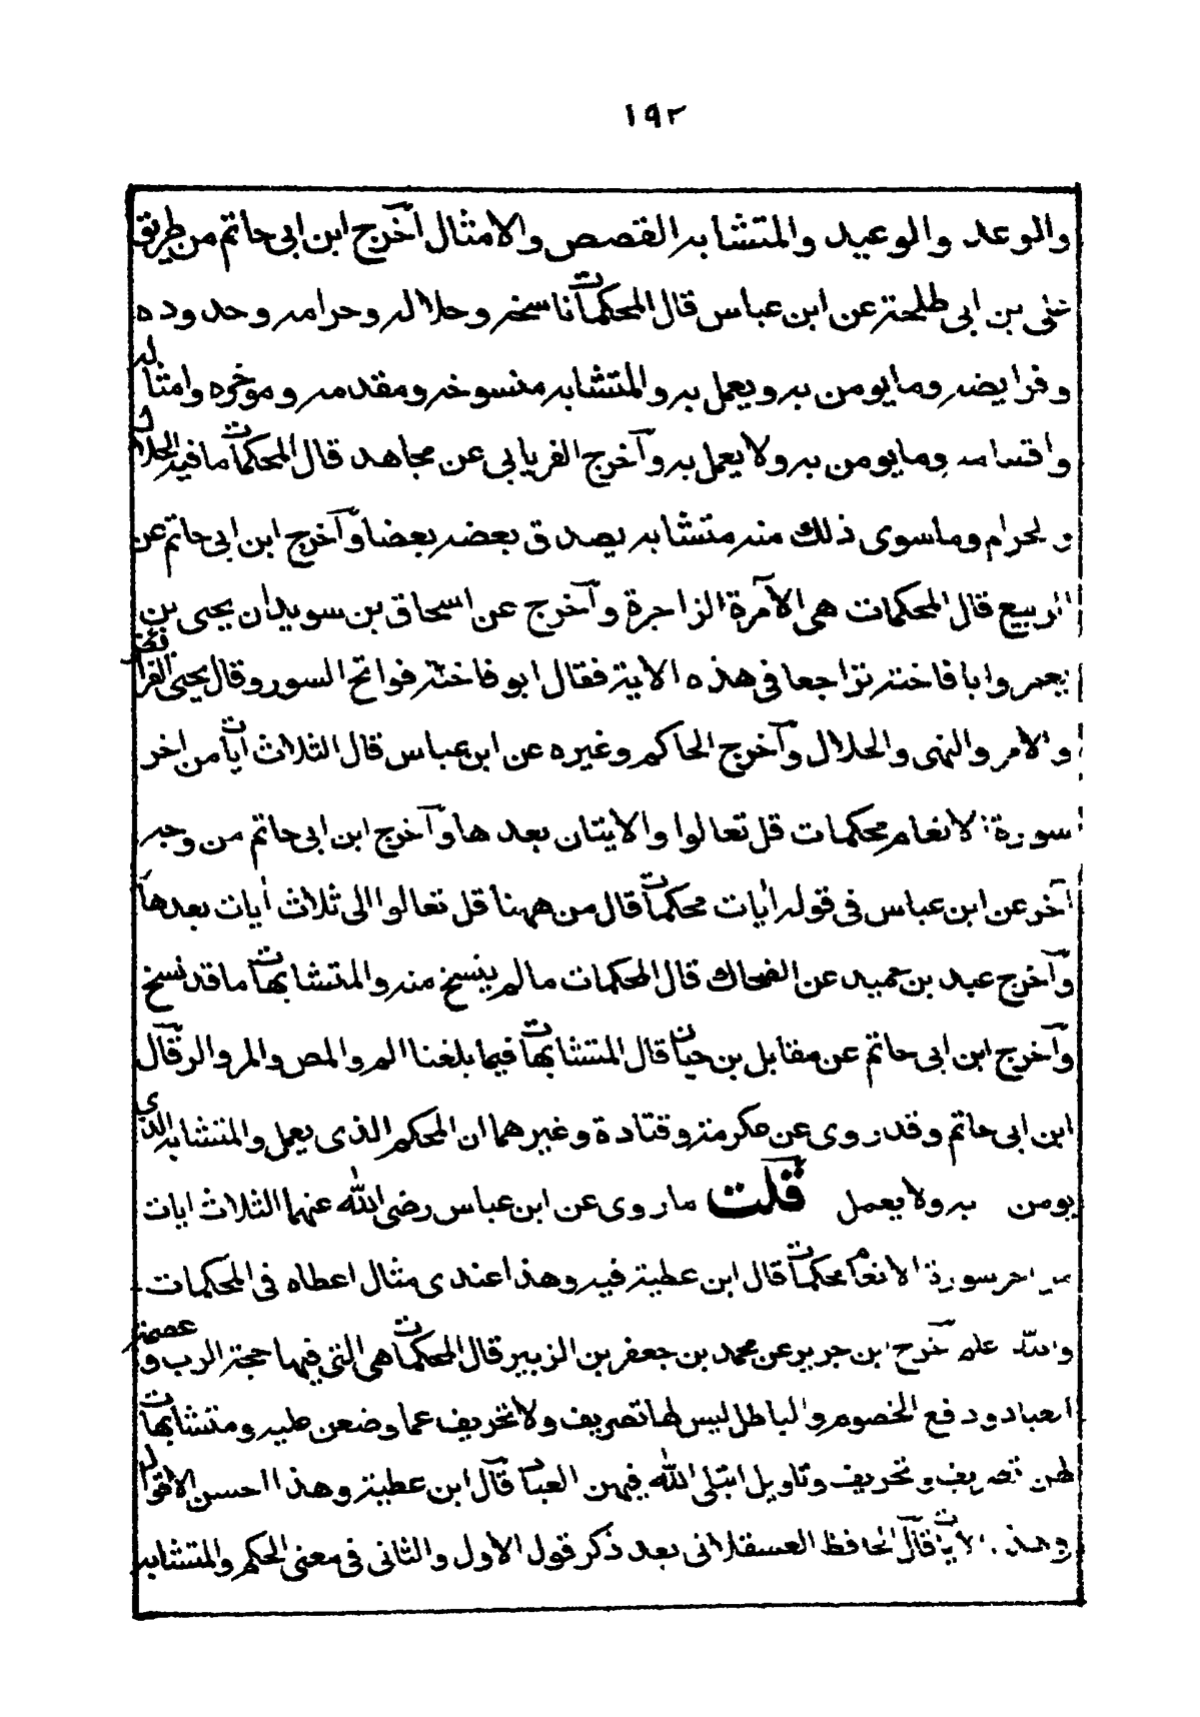 ١٩٢
والوعد والوعيد والمتشابه القصص والامثال آخرج ابن ابى حاتم من طريق
على بن ابى طلحة عن ابن عباس قال المحكمات ناسخه وحلاله وحرامه وحدوده
وفرايضه ومايومن به ويعمل به والمتشابه منسوخه ومقدمه وموخره وامثاله
واقسامه ومايومن به ولا يعمل به وآخرج الفريابى عن مجاهد قال المحكمات مافيه الحلال
ولحرام وماسوى ذلك منه متشابه يصدق بعضه بعضا وآخرج ابن ابى حاتم عن
الربيع قال المحكمات هى الآمرة الزاجرة وآخرج عن اسحاق بن سويدان يحيى بن
يعمر وابا فاختة تراجعا فى هذه الاية فقال ابو فاختة فواتح السور وقال يحيى الفرائض
والامر والنهى والحلال وآخرج الحاكم وغيره عن ابن عباس قال الثلاث ايات من اخر
سورة الانعام محكمات قل تعالوا والايتان بعدها وآخرج ابن ابى حاتم من وجه
آخر عن ابن عباس فى قوله ايات محكمات قال من ههنا قل تعالوا الى ثلاث ايات بعدها
وآخرج عبد بن حميد عن الضحاك قال المحكمات مالم ينسخ منه والمتشابهات ماقد نسخ
وآخرج ابن ابى حاتم عن مقابل بن حيان قال المتشابهات فيما بلغنا الم والمص والمر والر قال
ابن ابى حاتم وقد روى عن عكرمة وقتادة وغيرهما ان المحكم الذى يعمل والمتشابه الذي
يومن به ولا يعمل قلت ماروى عن ابن عباس رضى الله عنهما الثلاث ايات
من اخر سورة الانعام محكمات قال ابن عطية فيه وهذا عندى مثال اعطاه فى المحكمات
والله علم خرج ابن جرير عن محمد بن جعفر بن الزبير قال المحكمات هى التى فيها حجة الرب وعصمة
العباد ودفع الخصوم والباطل ليس لها تصريف ولا تحريف عما وضعن عليه ومتشابهات
لهن تصريف وتحريف وتاويل ابتلى الله فيهن العباد قال ابن عطية وهذا احسن الاقوال
وهذه الاية قال الحافظ العسقلانى بعد ذكر قول الاول والثانى فى معنى المحكم والمتشابه